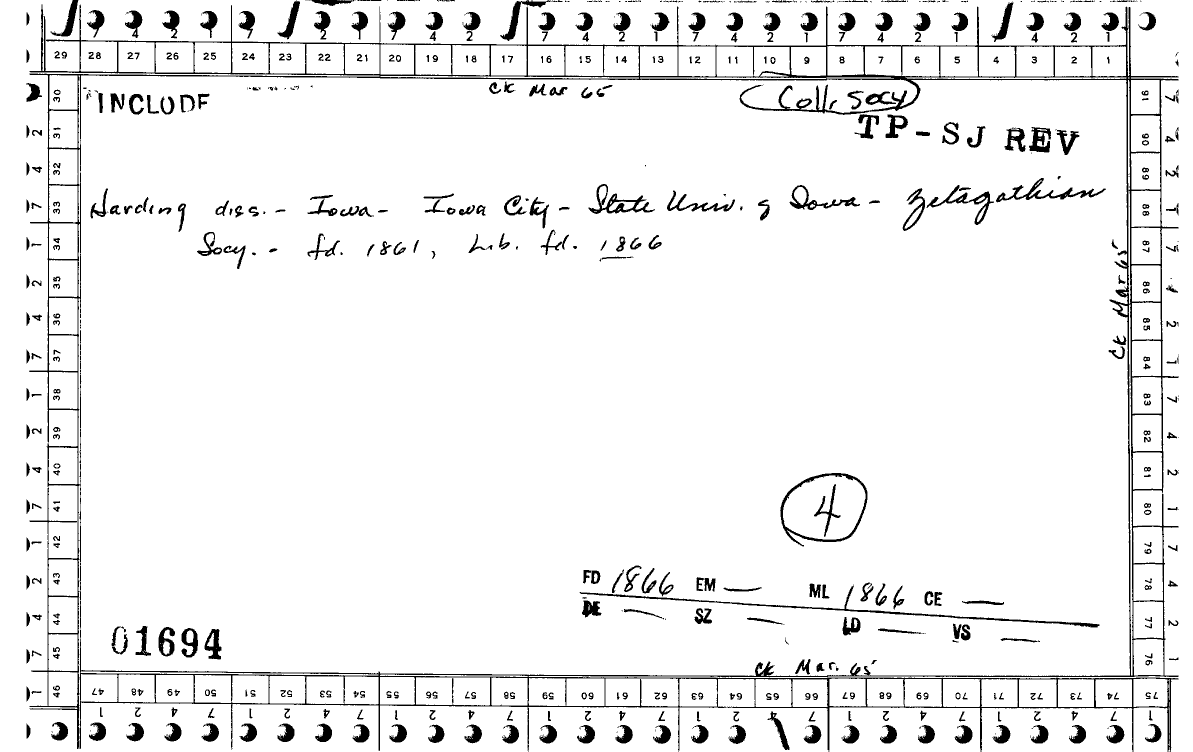 7 4 2 1 7 2 1 7 4 2 7 4 2 1 7 4 2 1 7 4 2 1 4 2 1
29 28 27 26 25 24 23 22 21 20 19 18 17 16 15 14 13 12 11 10 9 8 7 6 5 4 3 2 1
INCLUDE
CK Mar 65
Coll. Socy
TP-SJ REV
Harding diss. - Iowa - Iowa City - State Univ. of Iowa - Zetagathian
Socy. - fd. 1861, Lib. fd. 1866
CK Mar 65
4
FD 1866 EM — ML 1866 CE —
DE — SZ — LD — VS —
01694
CK Mar. 65
30 31 32 33 34 35 36 37 38 39 40 41 42 43 44 45 46
2 4 7 1 2 4 7 1 2 4 7 1 2 4 7 1
91 90 89 88 87 86 85 84 83 82 81 80 79 78 77 76
47 48 49 50 51 52 53 54 55 56 57 58 59 60 61 62 63 64 65 66 67 68 69 70 71 72 73 74 75
1 2 4 7 1 2 4 7 1 2 4 7 1 2 4 7 1 2 4 7 1 2 4 7 1 2 4 7 1